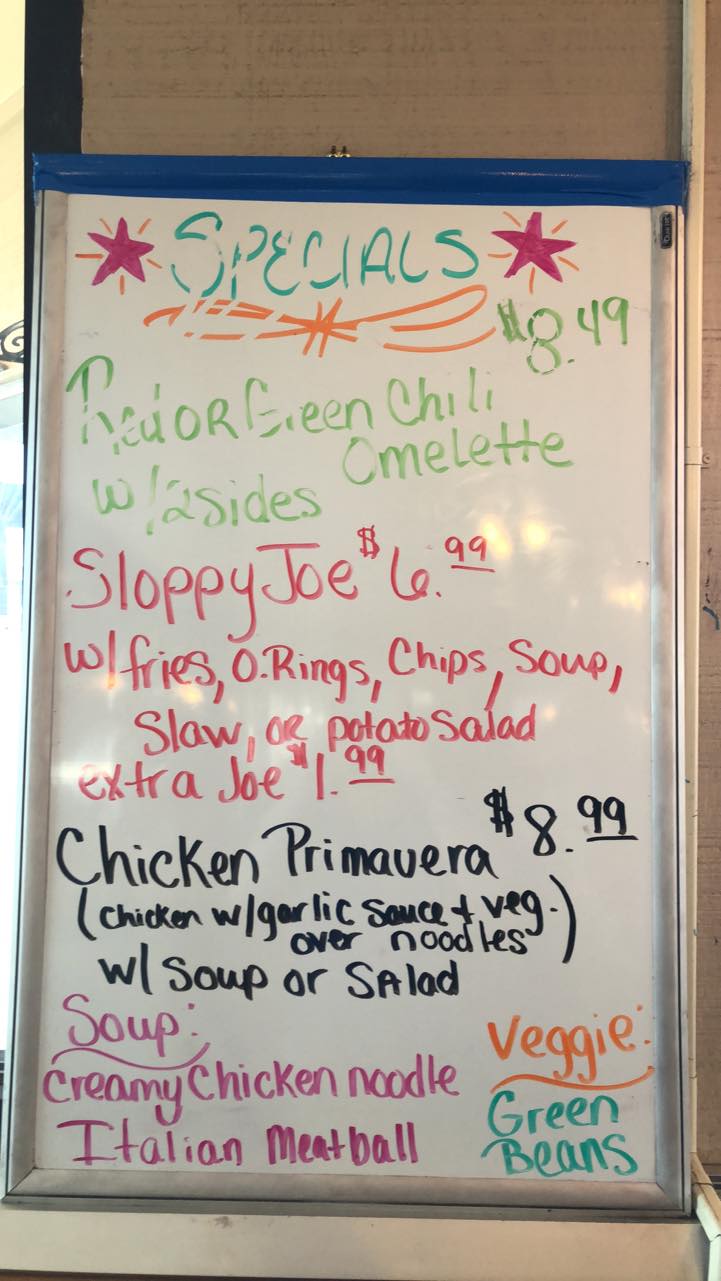 SPECIALS
$8.49
Red OR Green Chili
Omelette
w/2sides
Sloppy Joe $6.99
w/fries, O.Rings, Chips, Soup,
Slaw, OR potato Salad
extra Joe $1.99
Chicken Primavera $8.99
(chicken w/garlic sauce + veg.)
over noodles
w/ Soup or SAlad
Soup:
Creamy Chicken noodle
Italian Meatball
Veggie:
Green
Beans